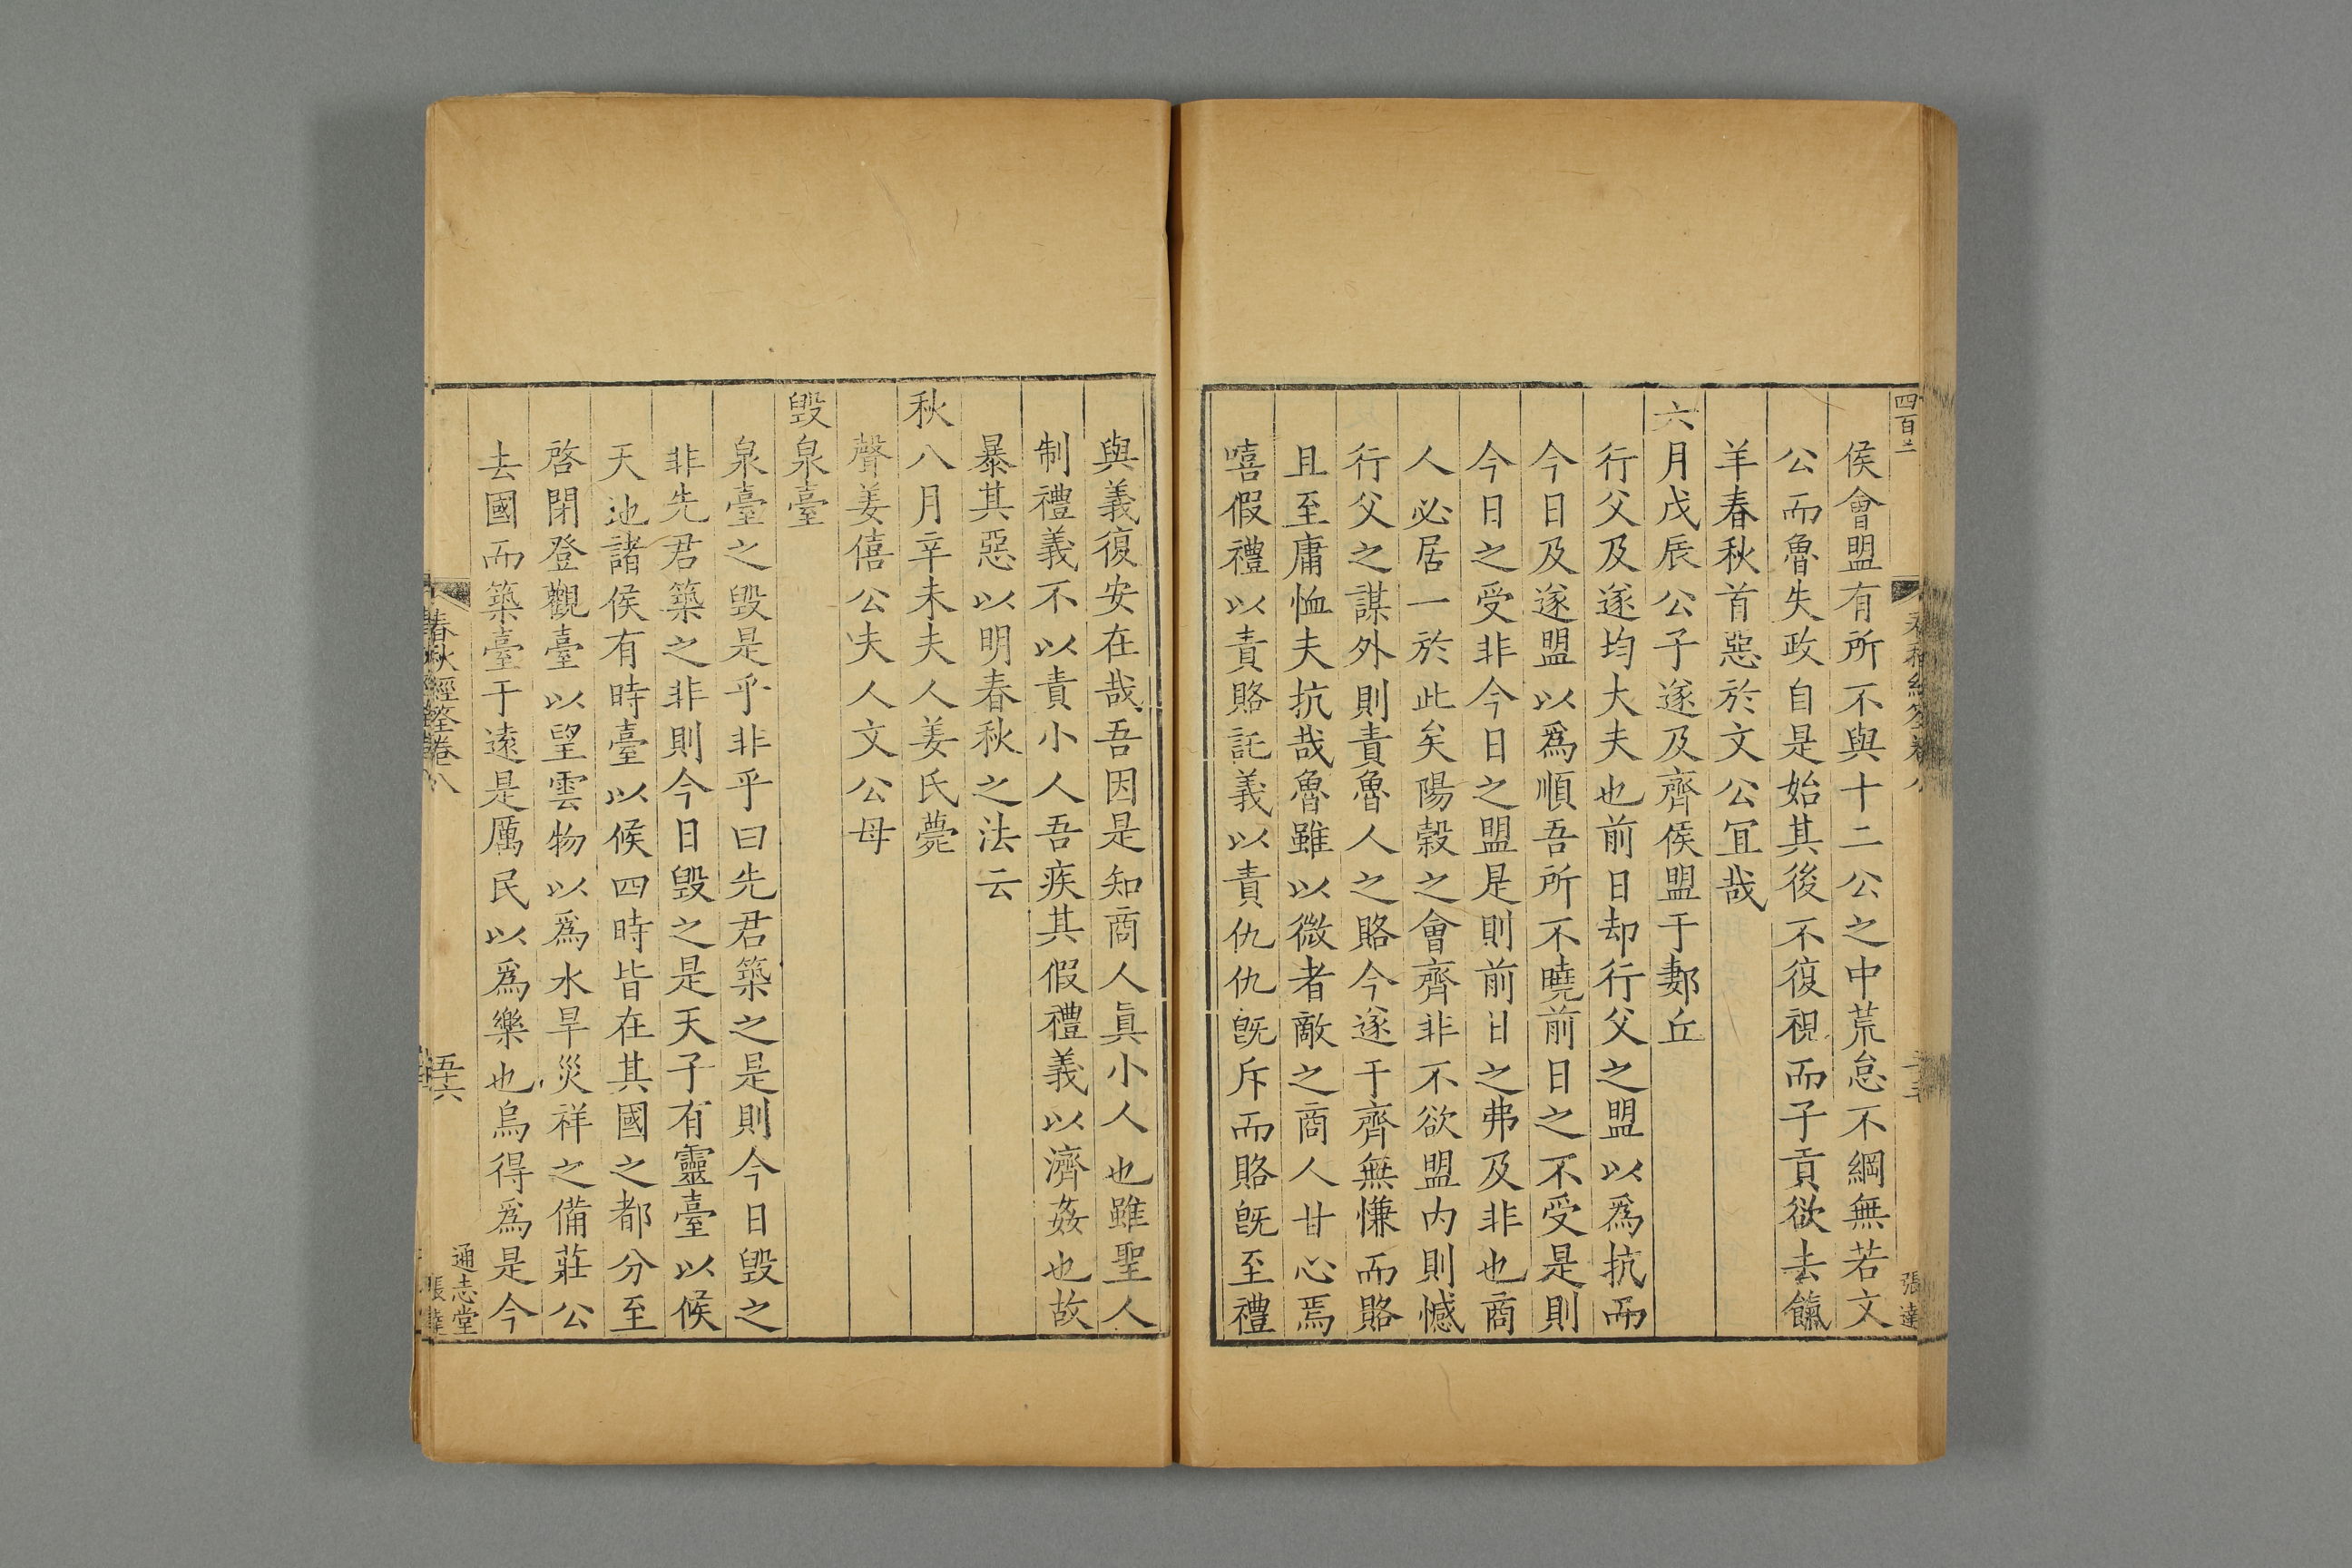 四百二
侯會盟有所不與十二公之中荒怠不綱無若文
公而魯失政自是始其後不復視而子貢欲去餼
羊春秋首惡於文公冝哉
六月戊辰公子遂及齊侯盟于郪丘
行父及遂均大夫也前日却行父之盟以爲抗而
今日及遂盟以爲順吾所不曉前日之不受是則
今日之受非今日之盟是則前日之弗及非也商
人必居一於此矣陽榖之會齊非不欲盟内則憾
行父之謀外則責魯人之賂今遂于齊無慊而賂
且至庸恤夫抗哉魯雖以微者敵之商人甘心焉
嘻假禮以責賂託義以責仇仇旣斥而賂旣至禮
張達
與義復安在哉吾因是知商人眞小人也雖聖人
制禮義不以責小人吾疾其假禮義以濟姦也故
暴其惡以明春秋之法云
秋八月辛未夫人姜氏薨
聲姜僖公夫人文公母
毁泉臺
泉臺之毁是乎非乎曰先君築之是則今日毁之
非先君築之非則今日毁之是天子有靈臺以候
天地諸侯有時臺以候四時皆在其國之都分至
啓閉登觀臺以望雲物以爲水旱災祥之備莊公
去國而築臺于遠是厲民以爲樂也烏得爲是今
春秋經筌卷八
五十六
通志堂
張達